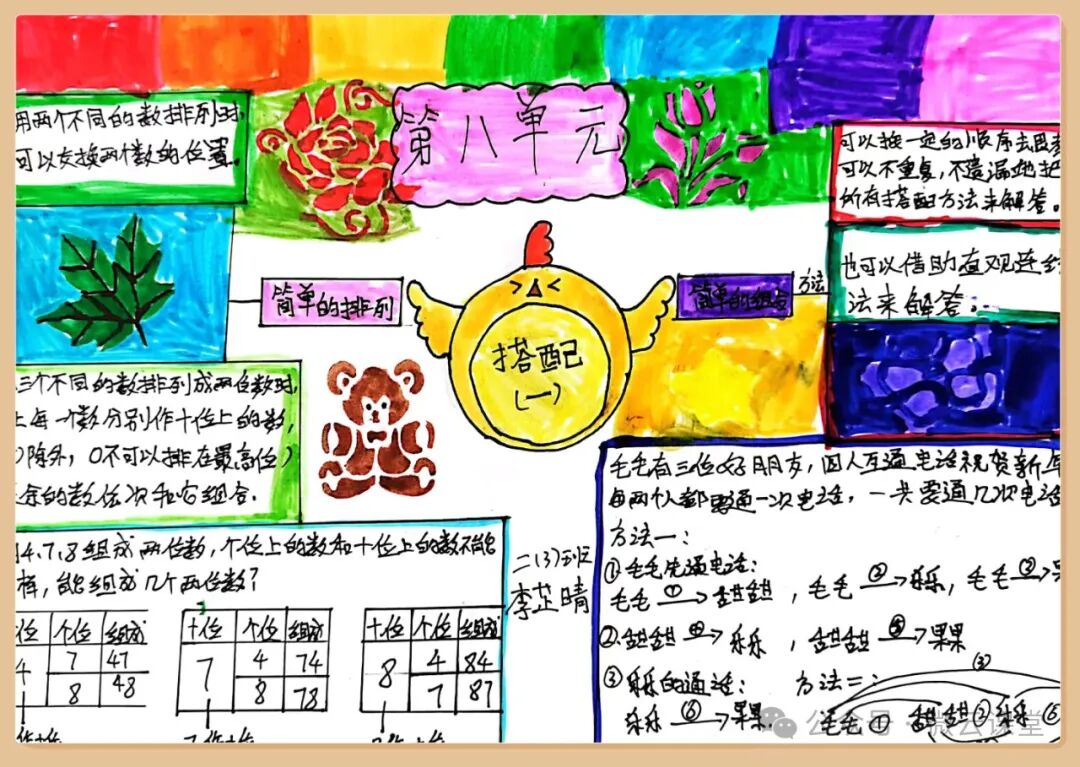 第八单元
用两个不同的数排列时,
可以交换两个数的位置。
简单的排列
三个不同的数排列成两位数时,
每一个数分别作十位上的数,
除外,0不可以排在最高位)
余的数依次和它组合.
4、7、8组成两位数,个位上的数和十位上的数不能
样,能组成几个两位数?
位 个位 组成
4 7 47
8 48
十位 个位 组成
7 4 74
8 78
十位 个位 组成
8 4 84
7 87
搭配
(一)
二(3)班
李芷晴
简单的组合
方法
可以按一定的顺序去思考
可以不重复,不遗漏地把
所有搭配方法来解答。
也可以借助直观连线
法来解答。
毛毛有三位好朋友,四人互通电话祝贺新年
每两个人都要通一次电话,一共要通几次电话
方法一:
①毛毛先通电话:
毛毛 ① 甜甜 , 毛毛 ③ 乐乐, 毛毛 ②
②甜甜 ④ 乐乐 , 甜甜 ⑤ 果果
③乐乐的通话: 方法二:
乐乐 ⑥ 果果
③
毛毛 ① 甜甜 ② 乐乐 ⑤
公众号 · 微云课堂